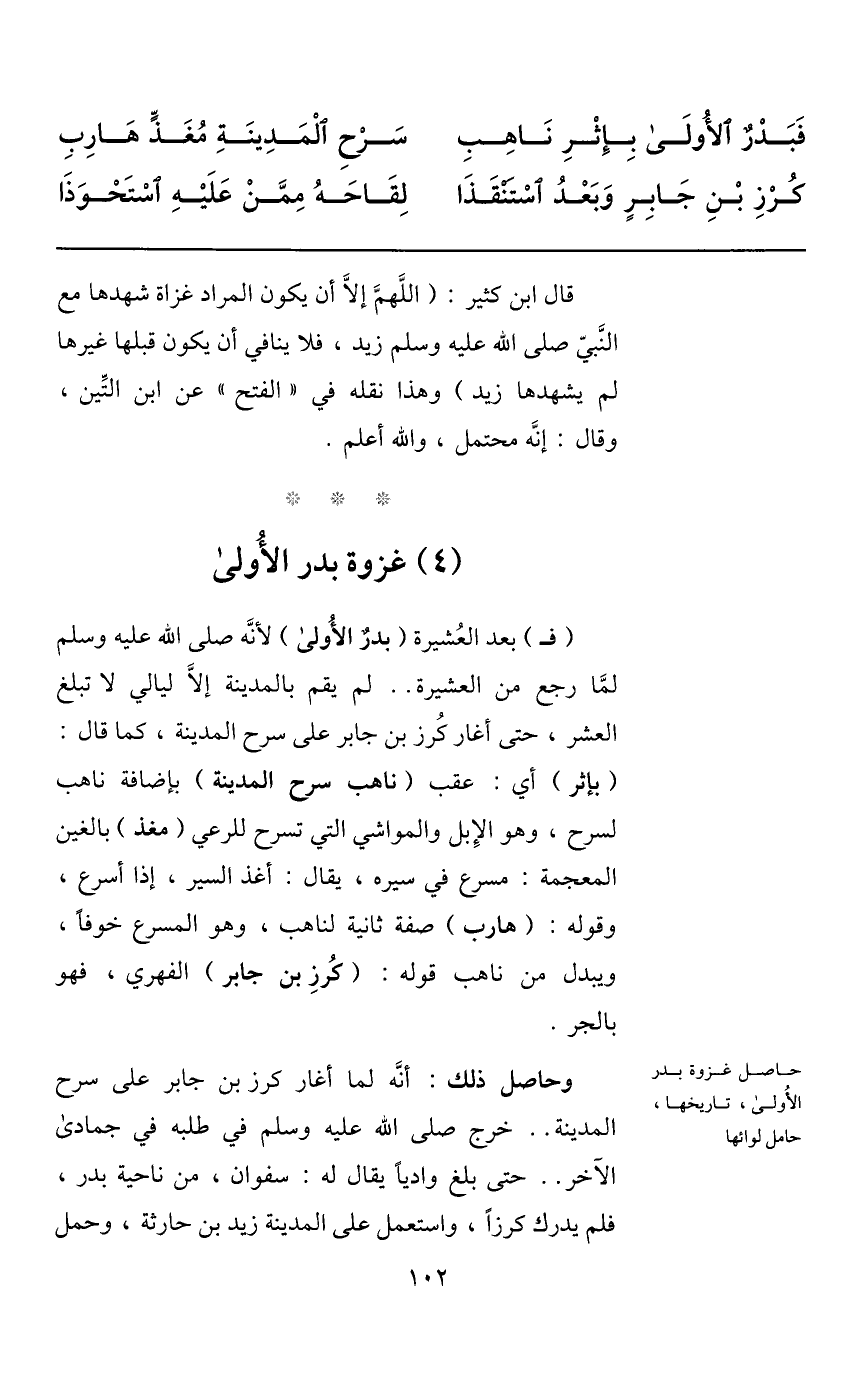 فَبَــدْرٌ ٱلأُولَــىٰ بِــإِثْــرِ نَــاهِــبِ سَــرْحِ ٱلْمَــدِينَــةِ مُغَــذٍّ هَــارِبِ
كُــرْزِ بْــنِ جَــابِــرٍ وَبَعْــدُ ٱسْتَنْقَــذَا لِقَــاحَــهُ مِمَّــنْ عَلَيْــهِ ٱسْتَحْــوَذَا
قال ابن كثير : ( اللَّهمَّ إلاَّ أن يكون المراد غزاة شهدها مع
النَّبيّ صلى الله عليه وسلم زيد ، فلا ينافي أن يكون قبلها غيرها
لم يشهدها زيد ) وهذا نقله في « الفتح » عن ابن التِّين ،
وقال : إنَّه محتمل ، والله أعلم .
* * *
(٤) غزوة بدر الأُولىٰ
( فـ ) بعد العُشيرة ( بدرٌ الأُولىٰ ) لأنَّه صلى الله عليه وسلم
لمَّا رجع من العشيرة.. لم يقم بالمدينة إلاَّ ليالي لا تبلغ
العشر ، حتى أغار كُرز بن جابر على سرح المدينة ، كما قال :
( بإثر ) أي : عقب ( ناهب سرح المدينة ) بإضافة ناهب
لسرح ، وهو الإبل والمواشي التي تسرح للرعي ( مغذ ) بالغين
المعجمة : مسرع في سيره ، يقال : أغذ السير ، إذا أسرع ،
وقوله : ( هارب ) صفة ثانية لناهب ، وهو المسرع خوفاً ،
ويبدل من ناهب قوله : ( كُرزِ بن جابر ) الفهري ، فهو
بالجر .
حــاصــل غــزوة بــدر
الأُولــىٰ ، تــاريخهــا ،
حامل لوائها
وحاصل ذلك : أنَّه لما أغار كرز بن جابر على سرح
المدينة.. خرج صلى الله عليه وسلم في طلبه في جمادىٰ
الآخر.. حتى بلغ وادياً يقال له : سفوان ، من ناحية بدر ،
فلم يدرك كرزاً ، واستعمل على المدينة زيد بن حارثة ، وحمل
١٠٢